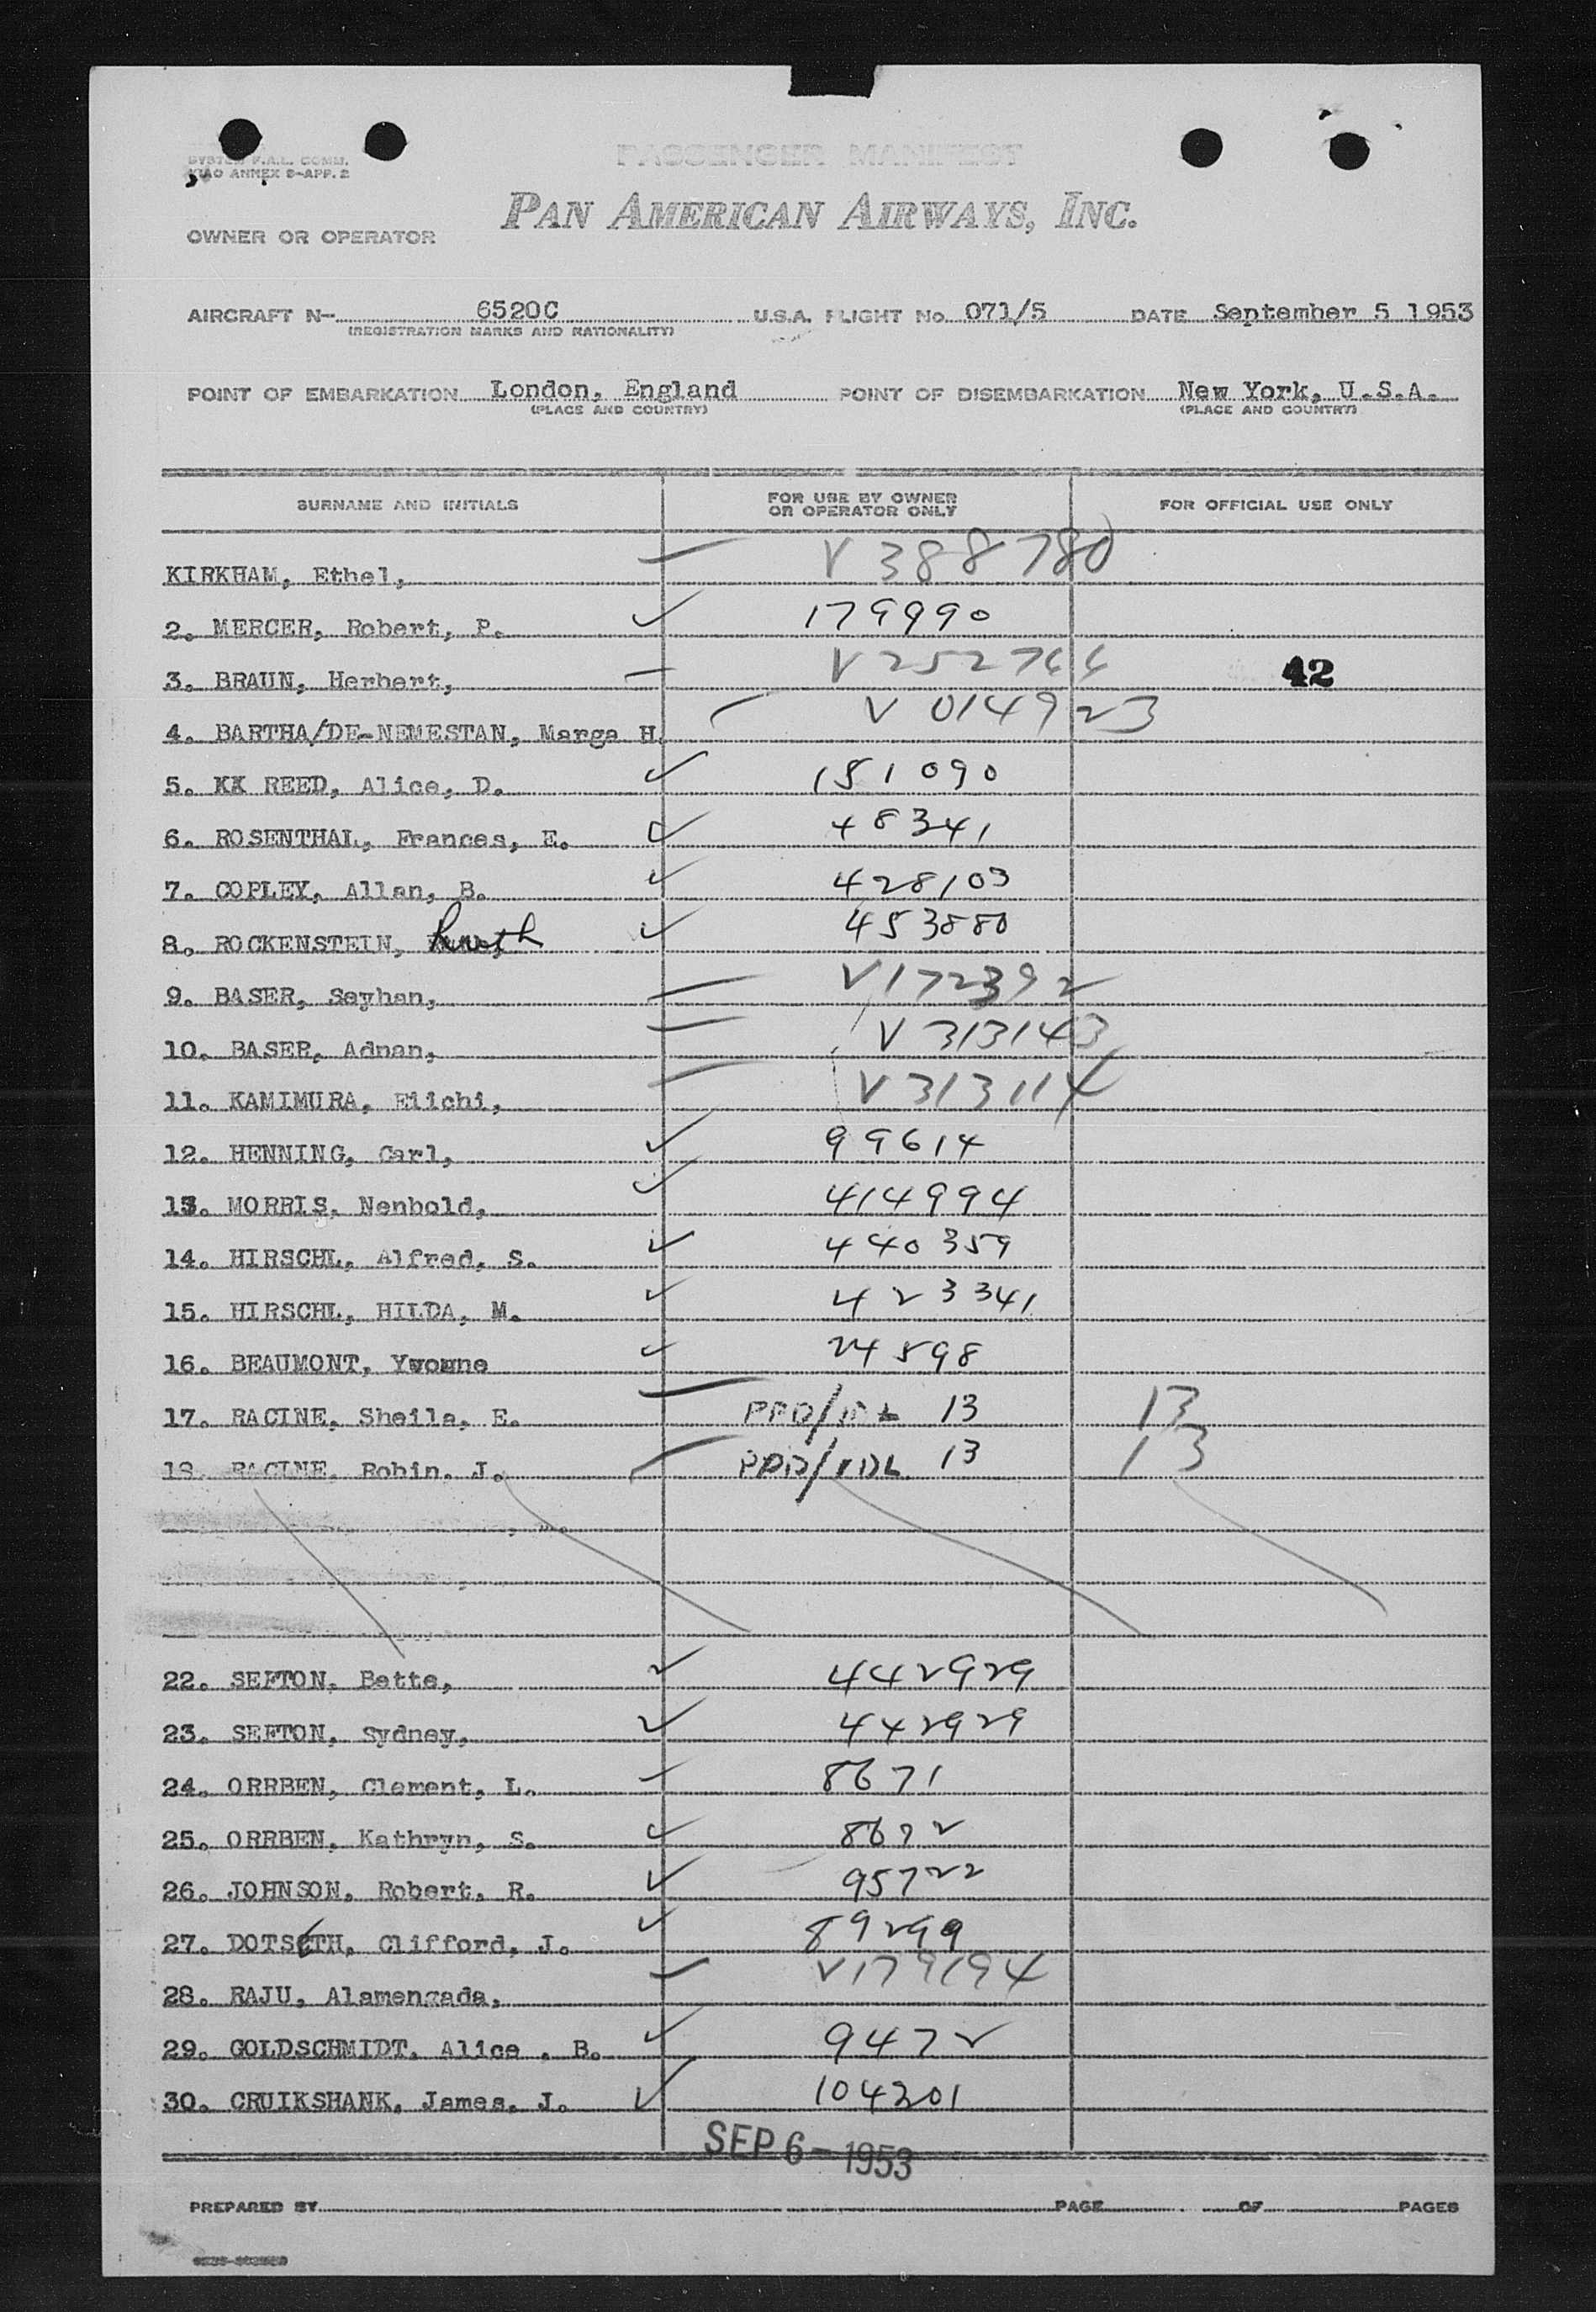 PASSENGER MANIFEST
SYSTEM F.A.L. COMM.
ICAO ANNEX 9-APP. 2
PAN AMERICAN AIRWAYS, INC.
OWNER OR OPERATOR
AIRCRAFT N- 6520C U.S.A. FLIGHT No. 071/5 DATE September 5 1953
(REGISTRATION MARKS AND NATIONALITY)
POINT OF EMBARKATION London, England POINT OF DISEMBARKATION New York, U.S.A.
(PLACE AND COUNTRY) (PLACE AND COUNTRY)
SURNAME AND INITIALS FOR USE BY OWNER OR OPERATOR ONLY FOR OFFICIAL USE ONLY
KIRKHAM, Ethel, V 388780
2. MERCER, Robert, P. ✓ 179990
3. BRAUN, Herbert, V 252766 42
4. BARTHA/DE-NEMESTAN, Marga H. V 014923
5. KK REED, Alice, D. ✓ 151090
6. ROSENTHAL, Frances, E. ✓ 48341
7. COPLEY, Allan, B. ✓ 428103
8. ROCKENSTEIN, Ruth ✓ 453880
9. BASER, Seyhan, V172392
10. BASER, Adnan, V 313143
11. KAMIMURA, Eiichi, V 313114
12. HENNING, Carl, ✓ 99614
13. MORRIS, Nenbold, ✓ 414994
14. HIRSCHL, Alfred, S. ✓ 440359
15. HIRSCHL, HILDA, M. ✓ 423341
16. BEAUMONT, Yvonne ✓ 24598
17. RACINE, Sheila, E. 13 13
18. RACINE, Robin, J. 13 13
22. SEFTON, Bette, ✓ 442929
23. SEFTON, Sydney, ✓ 442929
24. ORRBEN, Clement, L. 8671
25. ORRBEN, Kathryn, S. ✓ 8672
26. JOHNSON, Robert, R. ✓ 95722
27. DOTSETH, Clifford, J. ✓ 89299
28. RAJU, Alamengada, V179194
29. GOLDSCHMIDT, Alice , B. ✓ 9472
30. CRUIKSHANK, James, J. ✓ 104201
SEP 6 - 1953
PREPARED BY PAGE OF PAGES